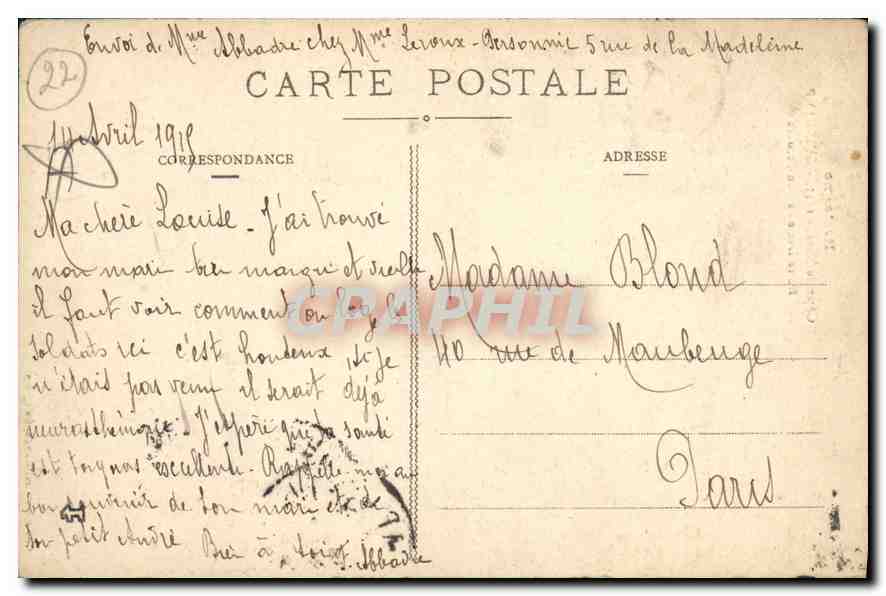 Envoi de Mme Abbadre chez Mme Leroux-Personnic 5 rue de la Madeleine
22
CARTE POSTALE
14 Avril 1915
CORRESPONDANCE
Ma chère Louise - J'ai trouvé
mon mari bien maigri et vieilli
il faut voir comment on loge les
soldats ici c'est honteux, si je
n'étais pas venue il serait déjà
neurasthénique. J'espère que ta santé
est toujours excellente - Rappelle-moi au
bon souvenir de ton mari et de
ton petit André Bien à toi
Abbadre
ADRESSE
Madame Blond
40 rue de Maubeuge
Paris
CPAPHIL